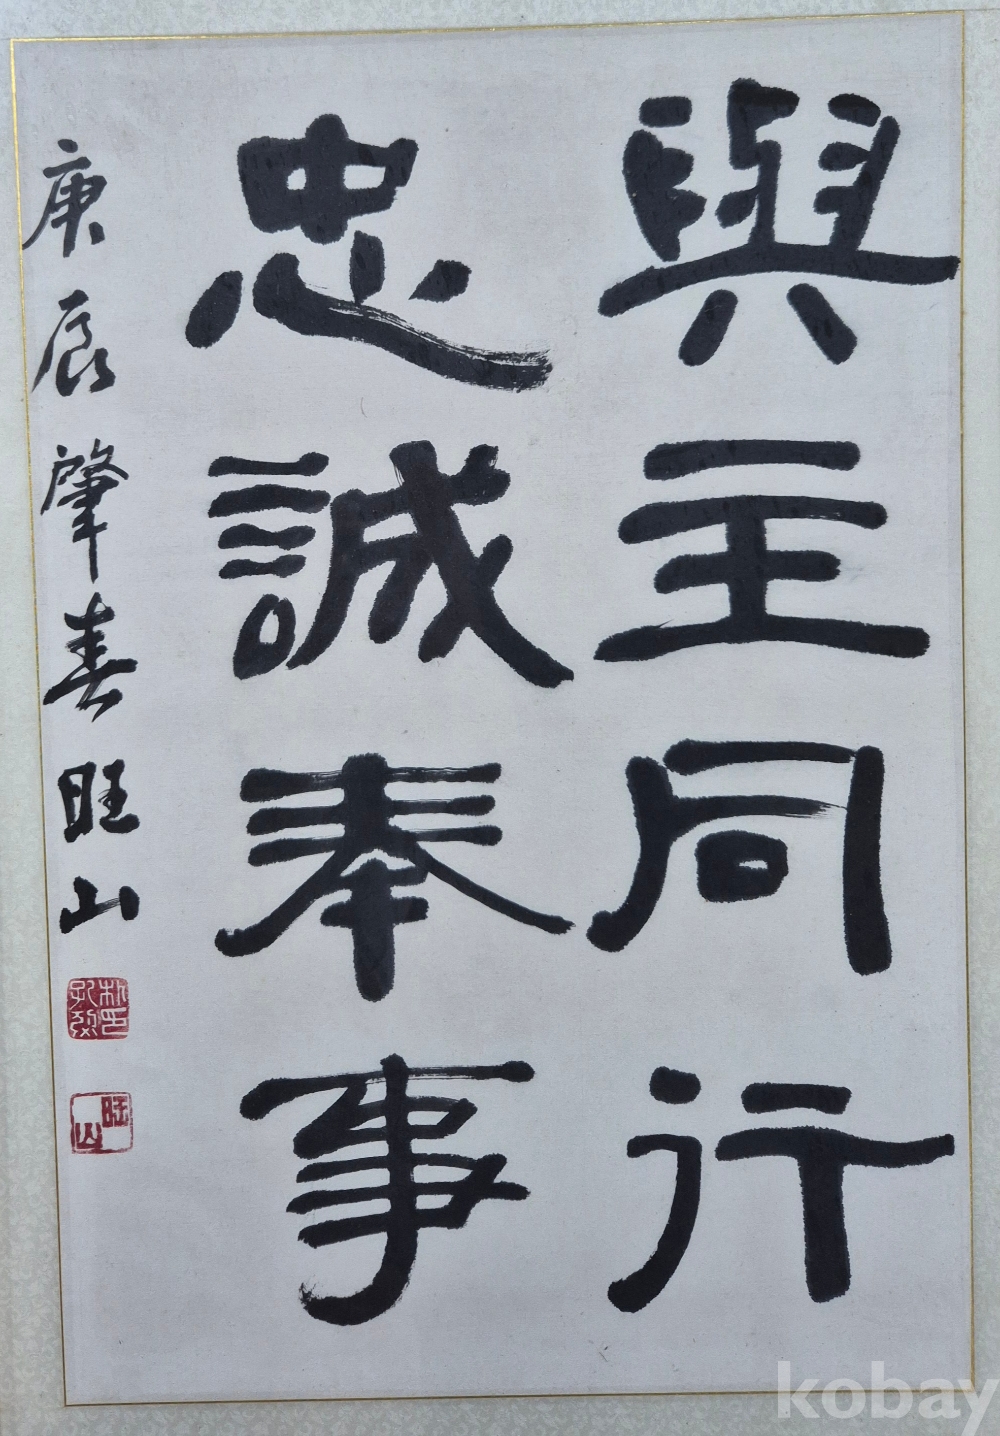 與主同行
忠誠奉事
庚辰肇春旺山
旺山
kobay